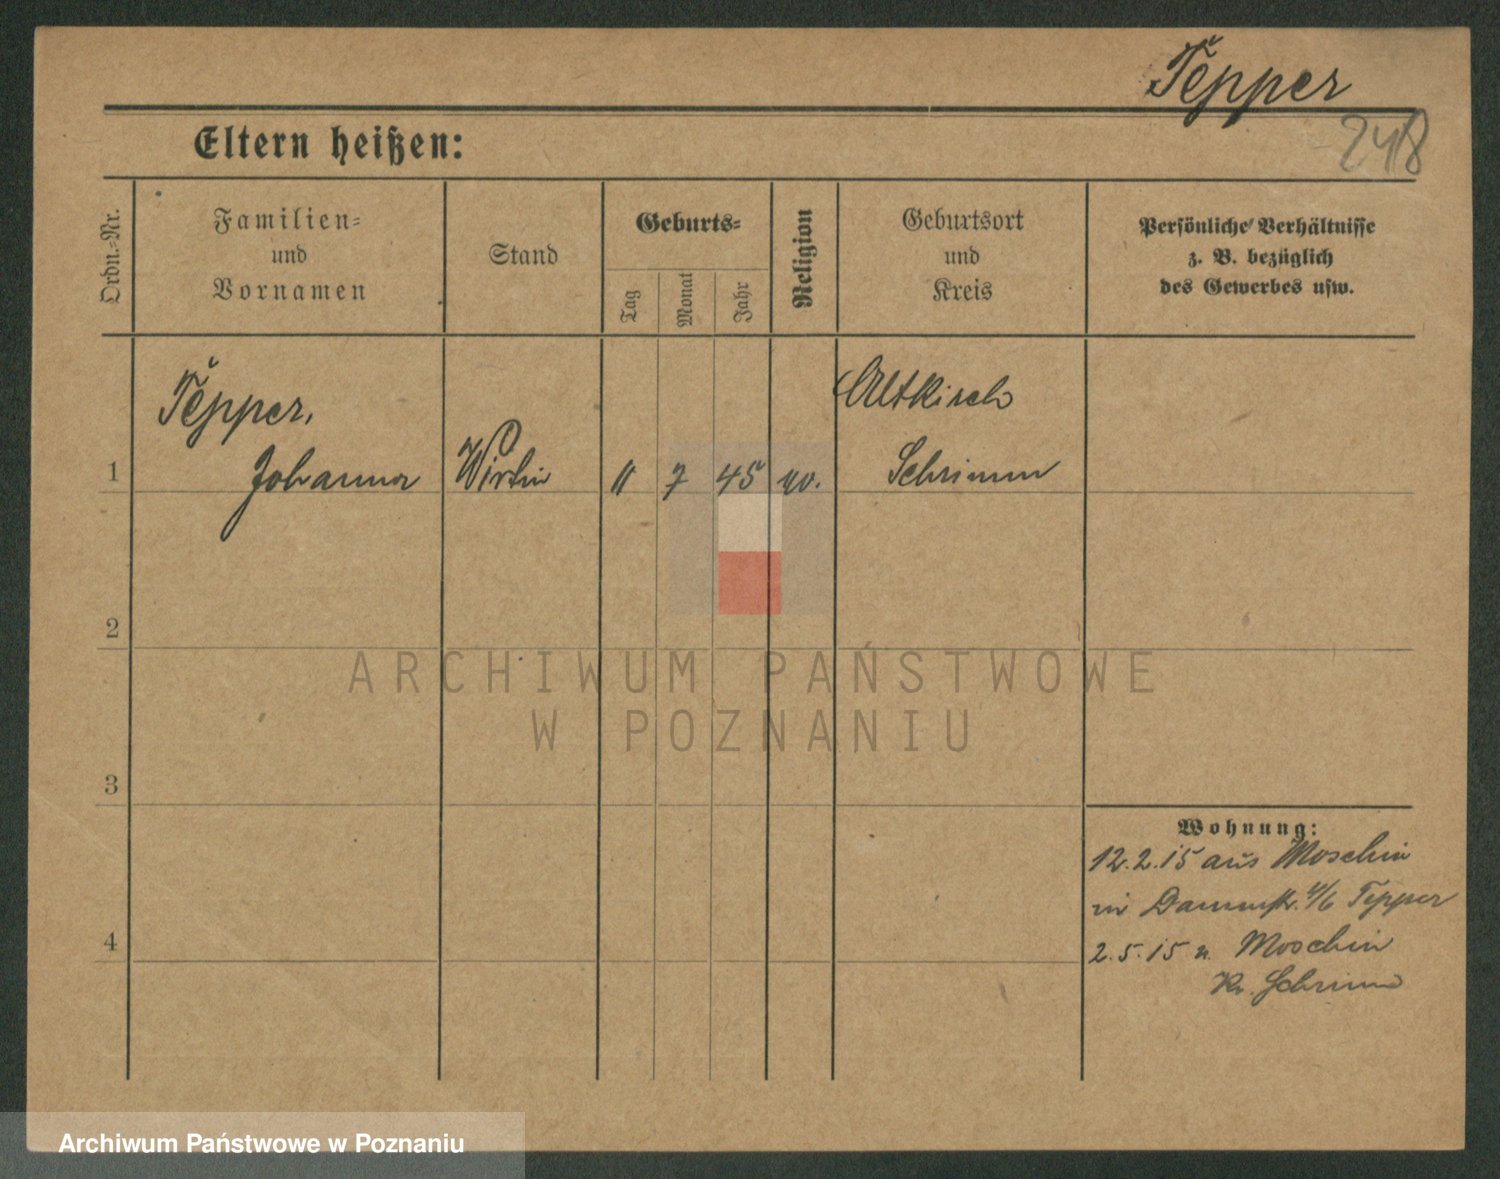 Tepper
248
Eltern heißen:
Ordn.=Nr.
Familien=
und
Vornamen
Stand
Geburts=
Tag
Monat
Jahr
Religion
Geburtsort
und
Kreis
Persönliche Verhältnisse
z. B. bezüglich
des Gewerbes usw.
1
Tepper,
Johanna
Wirtin
11
7
45
Altkirch
Schrimm
2
3
4
Wohnung:
12.2.15 aus Moschin
in Dammstr. 4/6 Tepper
2.5.15 n. Moschin
Kr. Schrimm
ARCHIWUM PAŃSTWOWE
W POZNANIU
Archiwum Państwowe w Poznaniu